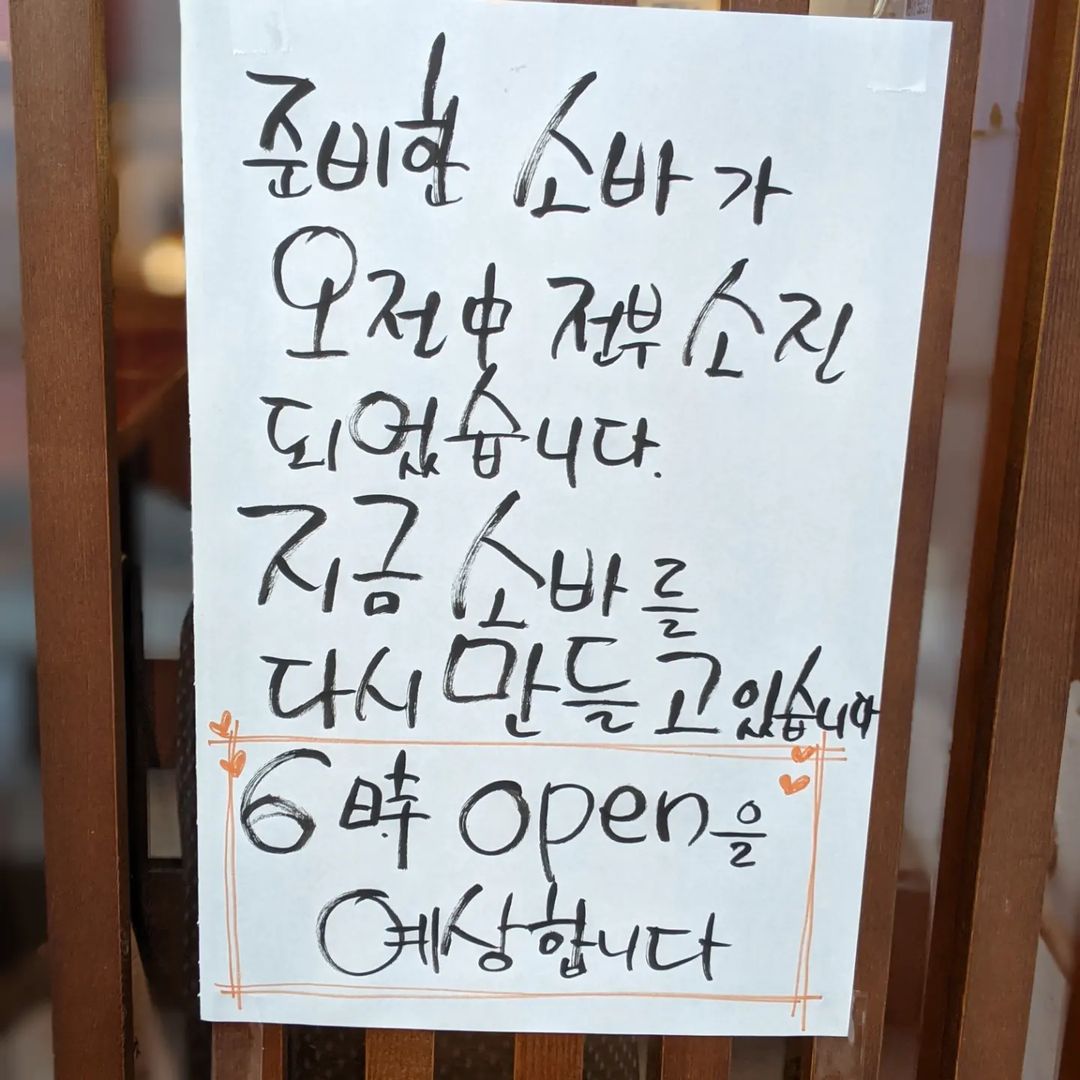 준비한 소바가
오전中 전부 소진
되었습니다.
지금 소바를
다시 만들고 있습니다
6時 open을
예상합니다